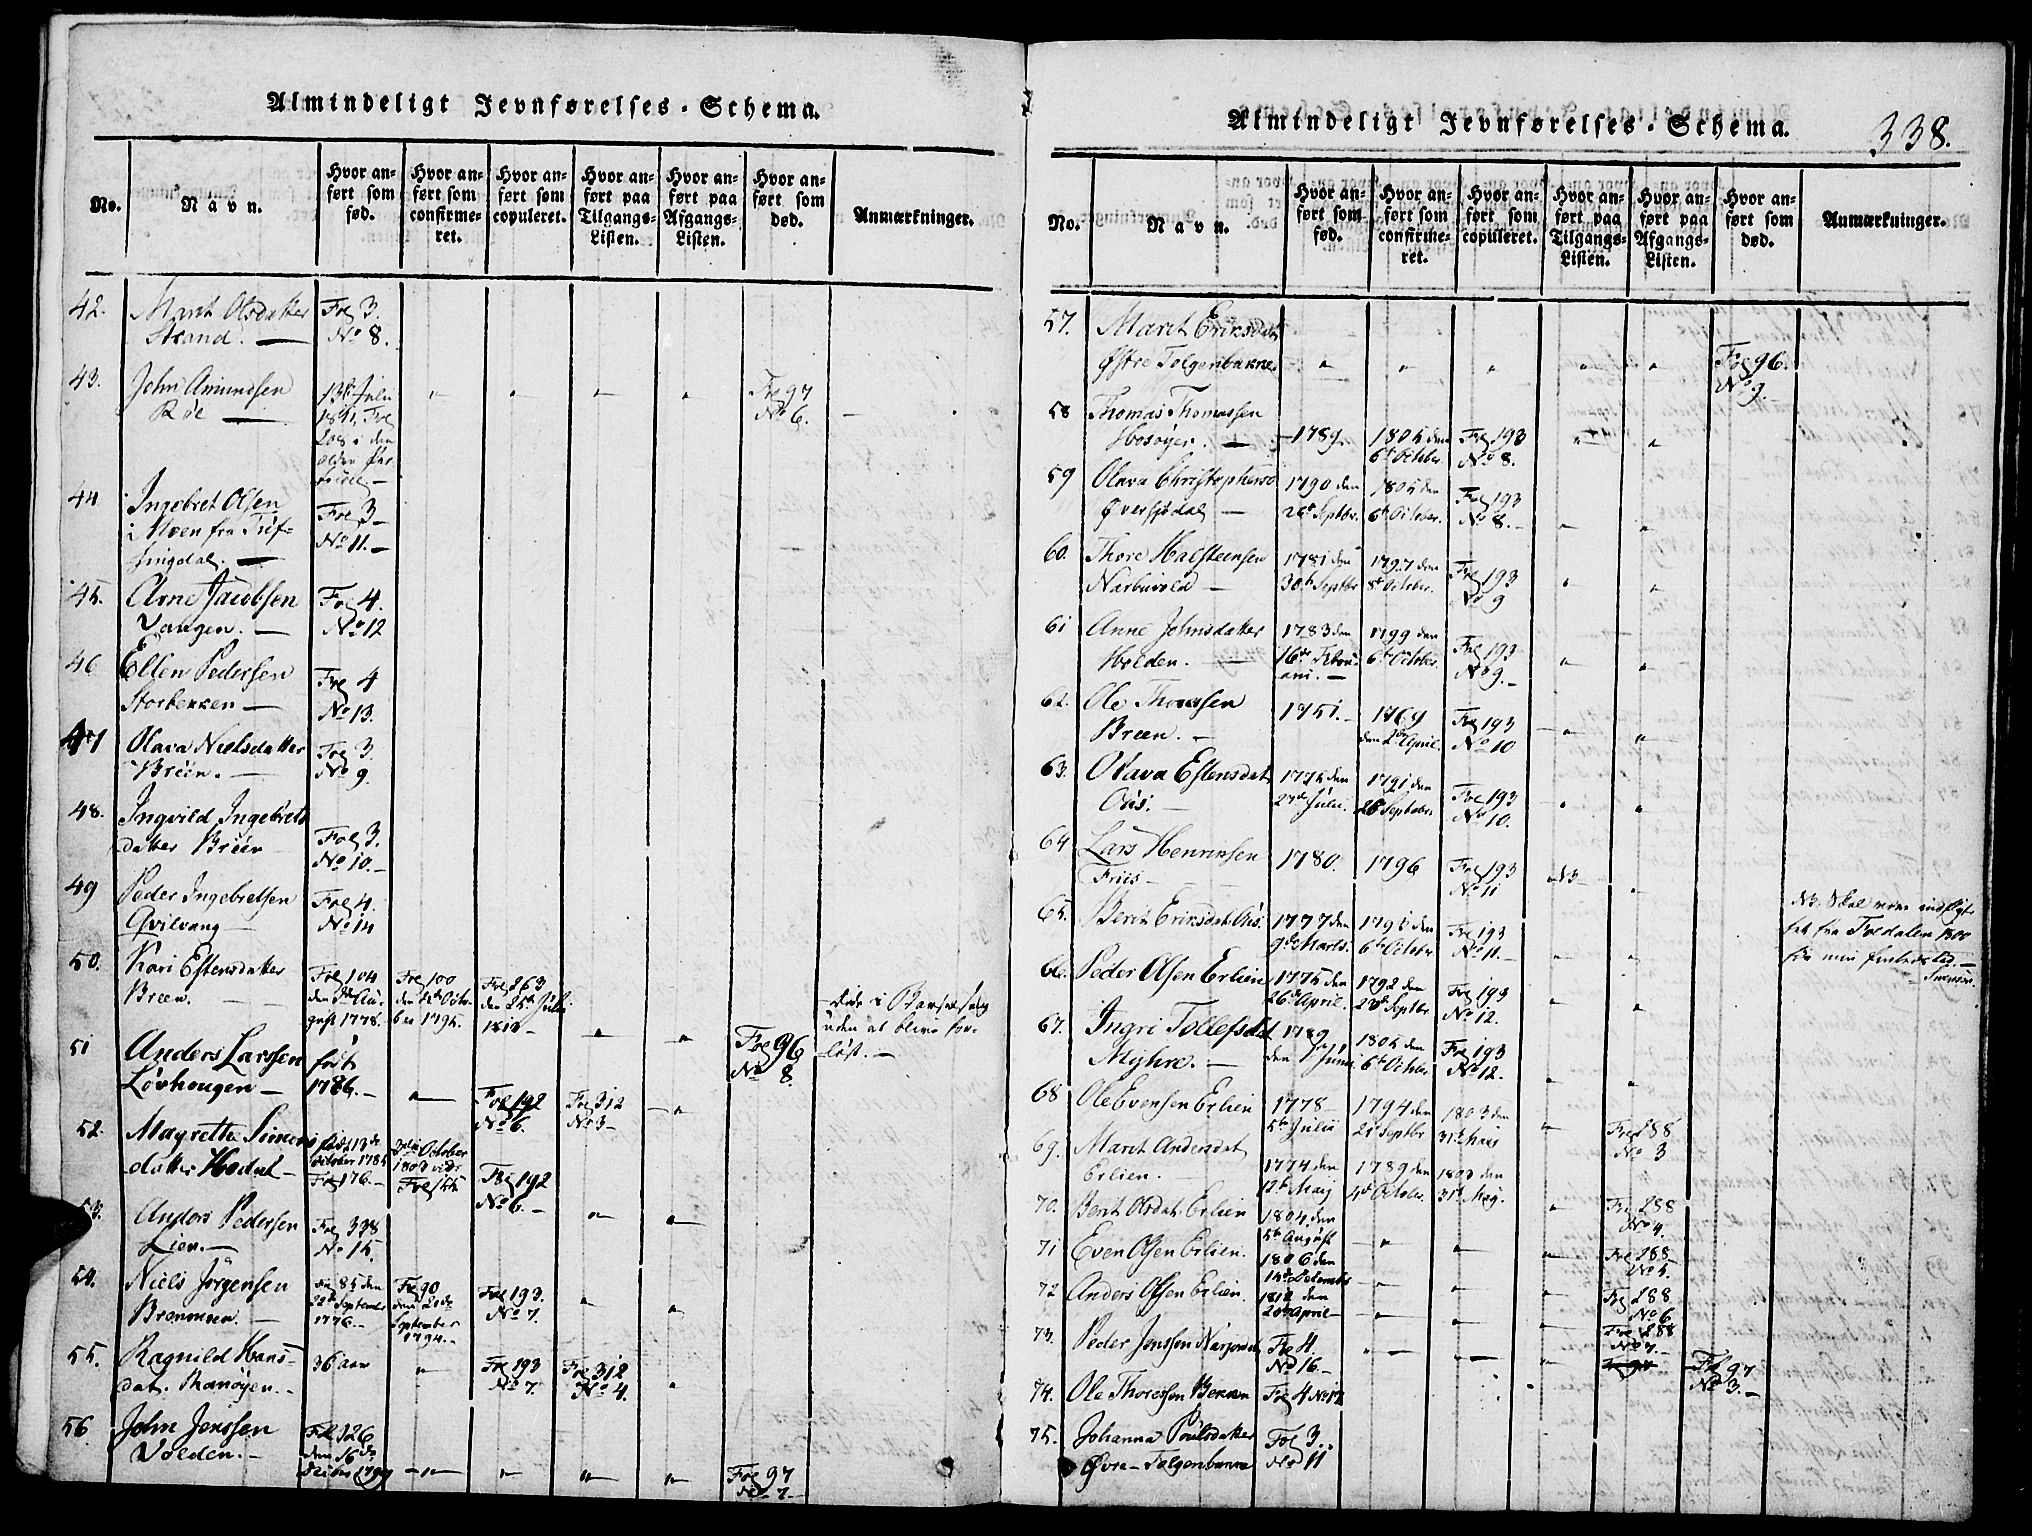 Almindeligt Jevnførelses-Schema.
No.
Navn.
Hvor anført som fød.
Hvor anført som confirmeret.
Hvor anført som copuleret.
Hvor anført paa Tilgangs-Listen.
Hvor anført paa Afgangs-Listen.
Hvor anført som død.
Anmærkninger.
42. Marit Olsdatter Fol 3.
Strand. — No 8.
43. John Amundsen 13de Julii " " " " Fol 97
Røe — Fol No 6. —
208 i den
44 Ingebret Olsen Fol 3 —
i Moen fra No 11. —
45. Arne Jacobsen Fol 4.
Vangen. — No 12
46 Ellen Pedersen Fol 4
Storbekken — No 13.
47 Olava Nielsdatter Fol 3.
Breen. — No 9.
48. Ingvild Ingebrets Fol 3.
datter Breen No 10. —
49 Peder Ingebretsen Fol 4.
Qvilvang — No 14
50. Kari Estensdatter Fol 104 Fol 100 Fol 263
Breen. den Au- den Octo- den 25de Julii
gust 1778. ber 1795. 1818 — " "
uden at blive
51 Anders Larssen født Fol 96
Lovhougen — 1786. — " Fol 192 Fol 312 " No 8.
No 6. No 3 —
52. Magrethe Simens født 13de October
datter Hodal — October 1803
Fol 176. — Fol Fol 192
No 6. — " "
53. Anders Pedersen Fol 338
Lien. — No 15.
54. Niels Jörgensen Fol 85 den Fol 90 Fol 193.
22de September den No 7. " "
1776 — September
1794. —
55. Ragnild Hans- 36 aar " Fol 193 Fol 312
dat. — No 7. No 4. "
56 John Jonssen Fol 126
Volden. — den 16de
" " " " Fol 97
No 7 —
Almindeligt Jevnførelses-Schema.
338.
No.
Navn.
Hvor anført som fød.
Hvor anført som confirmeret.
Hvor anført som copuleret.
Hvor anført paa Tilgangs-Listen.
Hvor anført paa Afgangs-Listen.
Hvor anført som død.
Anmærkninger.
57. Marit Eriksdat
Østre Tolgenbakke " " " " " Fol 96.
No 9.
58 Thomas Thomassen
— 1789. 1805 den Fol 193 " "
6te October. No 8.
59 Olava Christophersd 1790 den 1805 den Fol 193
Øversjødal — Septbr. 6te October. No 8. — " "
60. Thore Halsteensen 1781 den 1797 den Fol 193
Narbuvold — 30te Septbr 8de October. No 9 " "
61 Anne Johnsdatter 1783 den 1799 den Fol 193
Holden. — 16de Febru- 6te October. No 9. — " "
ari. —
62. Ole Thoressen 1751. — 1769 Fol 193
Breen. — den 2den April. No 10 " "
63. Olava Estensdat 1775 den 1791 den Fol 193
Aas. — Julii. 26 September No 10. " "
64 Lars Henriksen 1780. 1796 Fol 193
Friis — No 11 NB "
65. Berit Eriksdat Aas 1777 den 1795 den Fol 193 NB. Skal være indflyt-
9de Marts. 6te October No 11. — " " tet fra Tredalen 1800
før min Embedstid. —
66. Peder Olsen Erlien 1775 den 1792 den Fol 193
26de April. Septbr No 12. " "
67. Ingri Tollefsdat 1789 1805 den Fol 193
Myhre. — den Junii. 6te October No 12. " "
68 Ole Evensen Erlien 1778 1794 den 1803 den " Fol 288
5te Julii 21 Septbr 31te Maii No 3
69. Marit Andersdat 1774 den 1789 den 1803 den
Erlien. — 12te Maij 4de October. 31te Maj. " Fol 288
No 4.
70. Berit Olsdat. Erlien 1804. den
5te August " " " Fol 288
No 5.
71 Even Olsen Erlien. 1806 den
14de " " " Fol 288
No 6
72 Anders Olsen Erlien. 1812 den
20de April — " " " Fol 288
No 7. —
73. Peder Jonssen Fol 4. " " " Fol 97
No 16. — No 3. —
74. Ole Thoressen Fol 4 No 17
75. Johanna Poulsdatter Fol 3.
Øvre — Tolgenbakke No 11